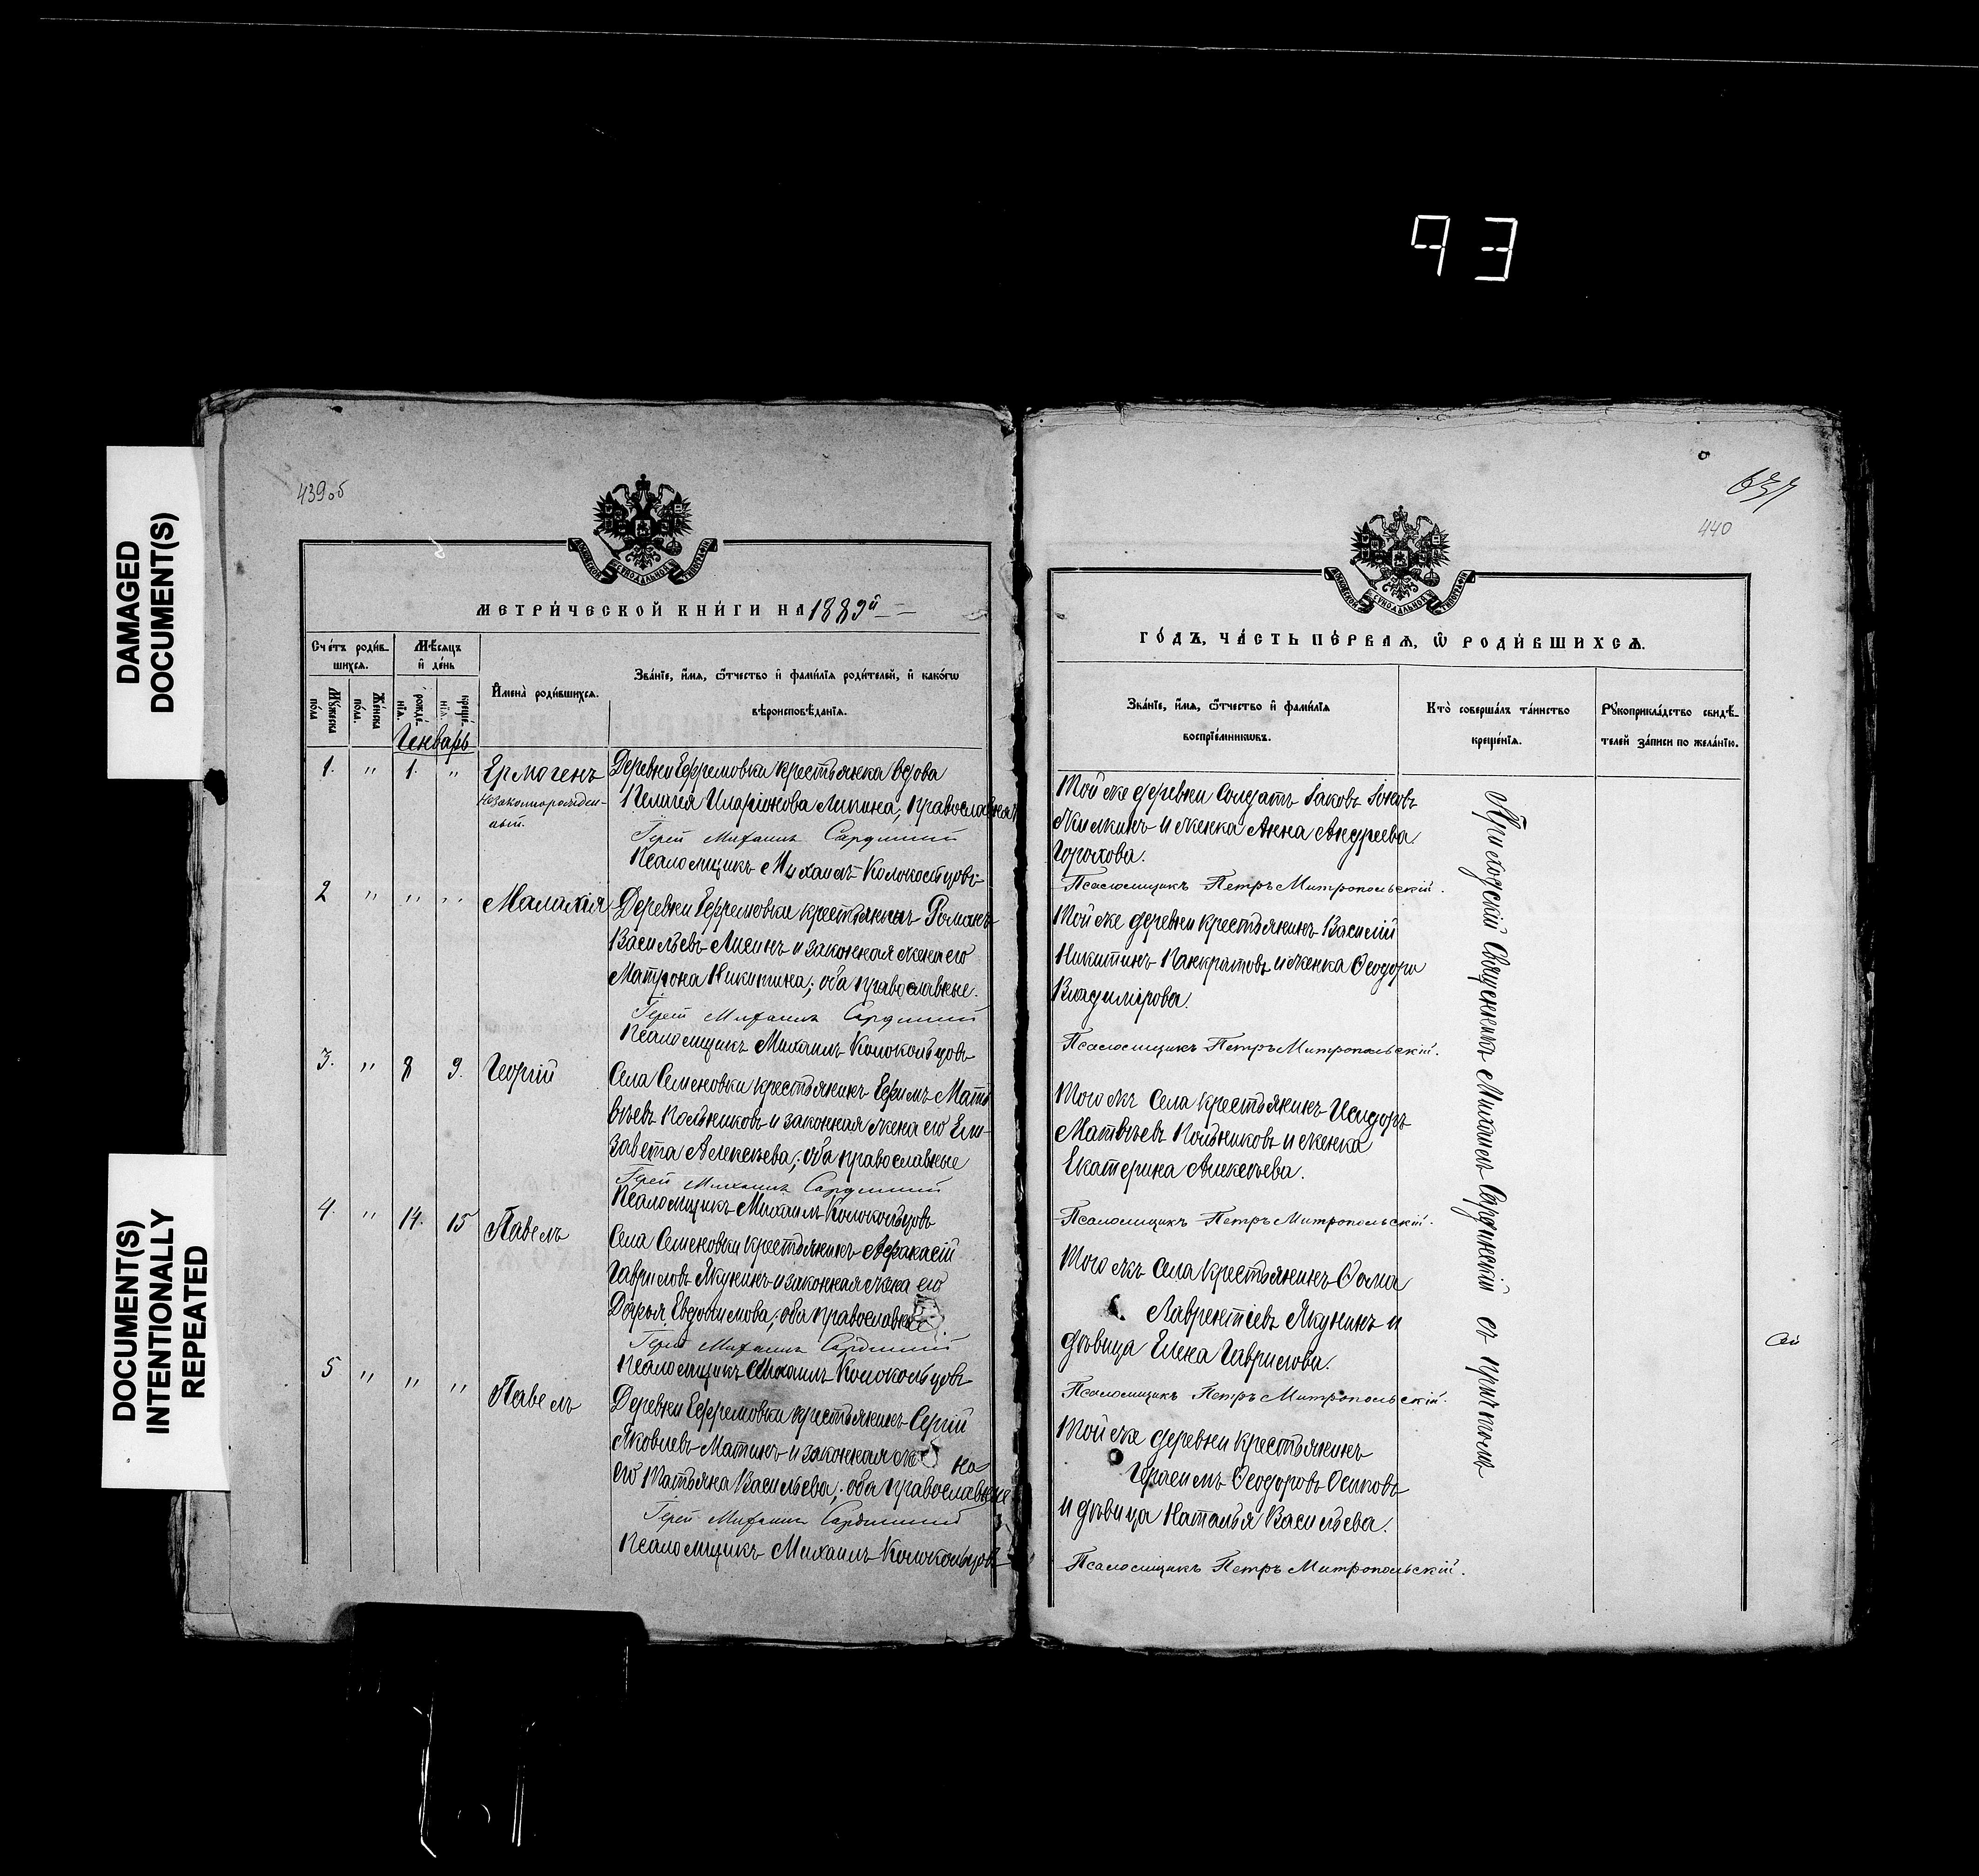 93
DAMAGED
DOCUMENT(S)
DOCUMENT(S)
INTENTIONALLY
REPEATED
439об
МОСКОВСКОЙ СѴНОДАЛЬНОЙ ТИПОГРАФІИ
МЕТРИ́ЧЕСКОЙ КНИ́ГИ НА 1889й
Сче́тъ роди́в-
шихся.
Мѣсяцъ
и҆ де́нь
Мꙋ́жеска
по́ла
Же́нска
по́ла.
рожде́-
нїѧ.
креще́-
нїѧ.
И҆мена̀ роди́вшихся.
Зва́нїе, и҆́мѧ, ѻ҆́тчество и҆ фами́лїѧ роди́телей, и҆ како́гѡ
вѣроисповѣ́данїѧ.
Генварь
1. " 1. " Ермогенъ
Незаконнорожден-
ный.
Деревни Ефремовки крестьянка вдова
Пелагея Иларіонова Липина, православная
Іерей Михаилъ Сардинский
Псаломщикъ Михаилъ Колокольцовъ
2 " " " Малахія
Деревни Ефремовки крестьянинъ Романъ
Васильевъ Лисинъ и законная жена его
Матрона Никитина; оба православные.
Іерей Михаилъ Сардинский
Псаломщикъ Михаилъ Колокольцовъ
3. " 8 9. Георгій
Села Семеновки крестьянинъ Ефимъ Матѳ
вѣевъ Польниковъ и законная жена его Ели-
завета Алексѣева; оба православные
Іерей Михаилъ Сардинский
Псаломщикъ Михаилъ Колокольцовъ
4. " 14. 15 Павелъ
Села Семеновки крестьянинъ Афанасій
Гавриловъ Якунинъ и законная жена его
Дарья Евдокимова; оба православные
Іерей Михаилъ Сардинский
Псаломщикъ Михаилъ Колокольцовъ
5 " " " Павелъ
Деревни Ефремовки крестьянинъ Сергій
Яковлевъ Матинъ и законная жена
его Татьяна Васильева; оба православные
Іерей Михаилъ Сардинский
Псаломщикъ Михаилъ Колокольцовъ
440
МОСКОВСКОЙ СѴНОДАЛЬНОЙ ТИПОГРАФІИ
ГО́ДЪ, ЧА́СТЬ ПЕ́РВАѦ, Ѡ҆ РОДИ́ВШИХСѦ.
Зва́нїе, и҆́мѧ, ѻ҆́тчество и҆ фами́лїѧ
воспрїе́мникѡвъ.
Кто̀ соверша́лъ та́инство
креще́нїѧ.
Рꙋкоприкла́дство свидѣ́-
телей за́писи по жела́нїю.
Той же деревни солдатъ Іаковъ Іоновъ
Жилкинъ и женка Анна Андреева
Горохова.
Псаломщикъ Петръ Митропольскій.
Той же деревни крестьянинъ Василій
Никитинъ Панкратовъ и женка Ѳеодора
Владимірова.
Псаломщикъ Петръ Митропольскій.
Того жъ села крестьянинъ Исидоръ
Матвѣевъ Польниковъ и женка
Екатерина Алексѣева.
Псаломщикъ Петръ Митропольскій.
Того жъ села крестьянинъ Ѳома
Лаврентіевъ Якунинъ и
дѣвица Елена Гаврилова.
Псаломщикъ Петръ Митропольскій.
Той же деревни крестьянинъ
Герасимъ Ѳеодоровъ Осиповъ
и дѣвица Наталья Васильева.
Псаломщикъ Петръ Митропольскій.
Приходскій Священникъ Михаилъ Сардинскій съ причтомъ